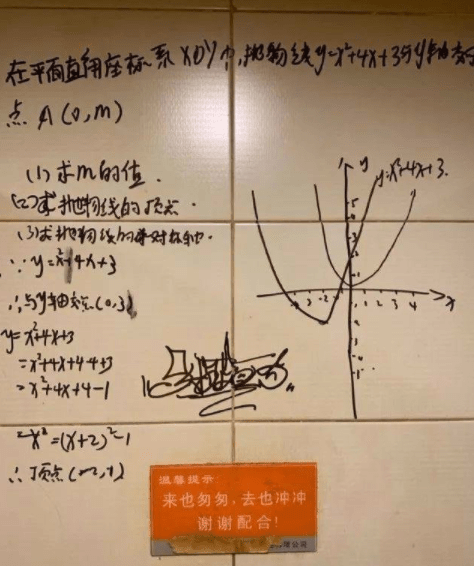 在平面直角坐标系XOY中,抛物线y=x²+4x+3与y轴交于
点A(0,m)
(1)求m的值.
(2)求抛物线的顶点.
(3)求抛物线的对称轴.
∵y=x²+4x+3
∴与y轴交点(0,3)
y=x²+4x+3
=x²+4x+4-4+3
=x²+4x+4-1
=(x+2)²-1
∴顶点(-2,-1)
y
y=x²+4x+3.
x
温馨提示
来也匆匆，去也冲冲
谢谢配合！
公司